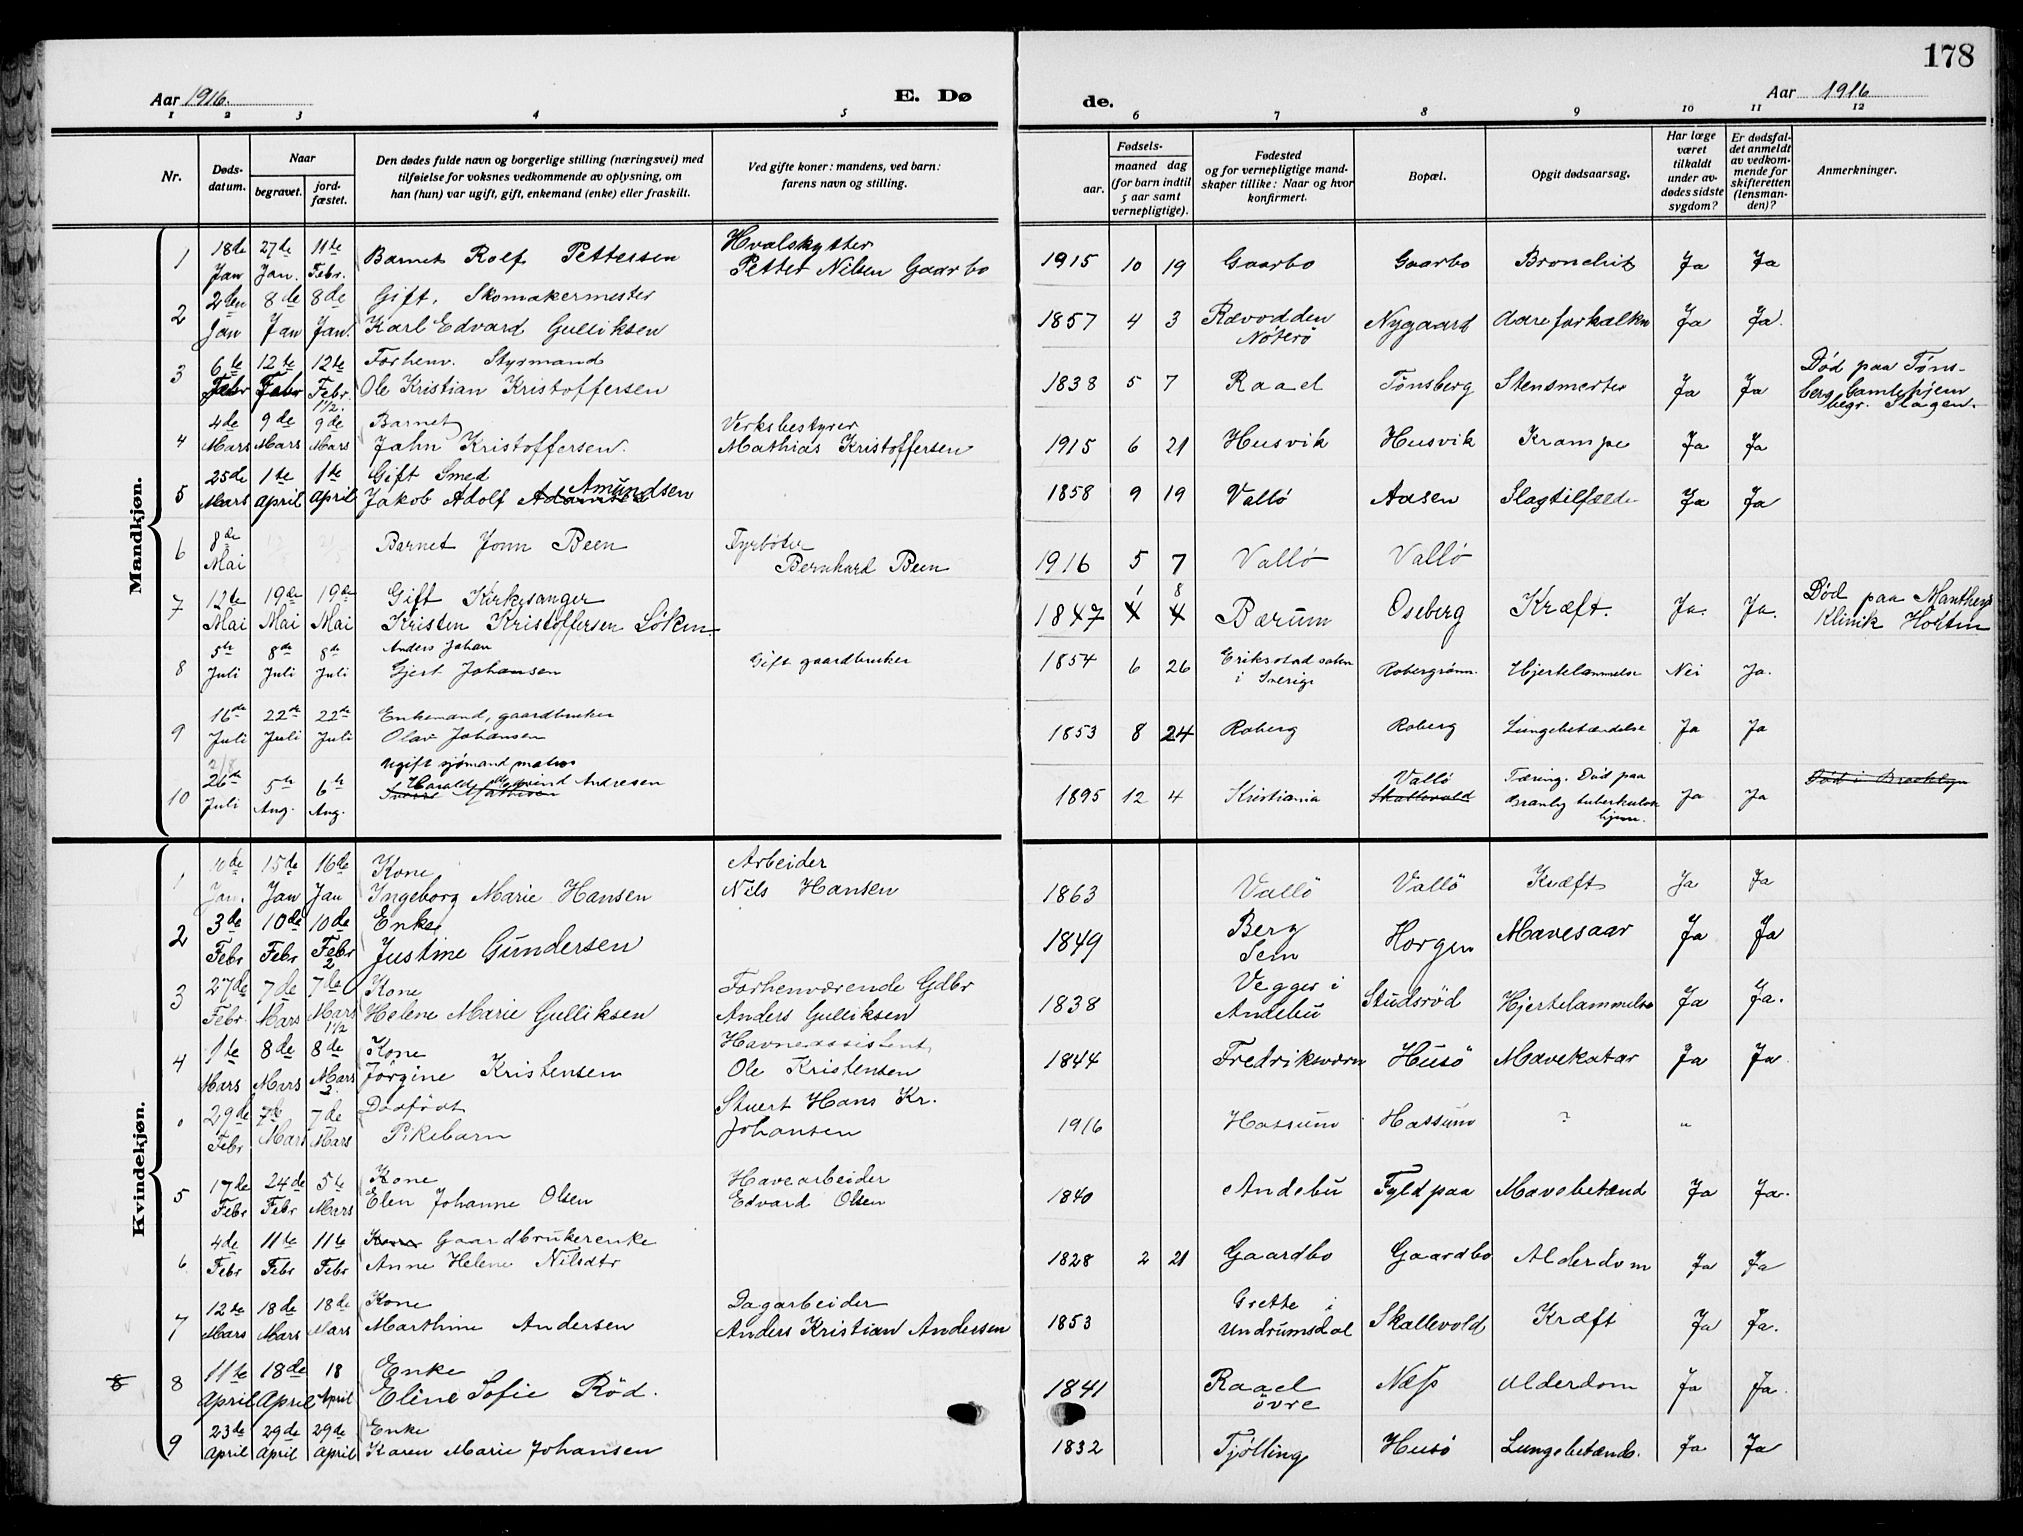 178
Aar 1916. E. Dø de. Aar 1916
1 2 3 4 5 6 7 8 9 10 11 12
Nr.
Døds-
datum.
Naar
begravet.
jord-
fæstet.
Den dødes fulde navn og borgerlige stilling (næringsvei) med
tilføielse for voksnes vedkommende av oplysning, om
han (hun) var ugift, gift, enkemand (enke) eller fraskilt.
Ved gifte koner: mandens, ved barn:
farens navn og stilling.
Fødsels-
aar.
maaned dag
(for barn indtil
5 aar samt
vernepligtige).
Fødested
og for vernepligtige mand-
skaper tillike: Naar og hvor
konfirmert.
Bopæl.
Opgit dødsaarsag.
Har læge
været
tilkaldt
under av-
dødes sidste
sygdom?
Er dødsfal-
det anmeldt
av vedkom-
mende for
skifteretten
(lensman-
den)?
Anmerkninger.
Mandkjøn.
1 18de 27de 11te Hvalskytter
Jan Jan. Febr. Barnet Rolf Pettersen Petter Nilsen Gaarbo 1915 10 19 Gaarbo Gaarbo Bronchit Ja Ja
2 2den 8de 8de Gift, Skomakermester
Jan Jan Jan. Karl Edvard Gulliksen 1857 4 3 Rævodden Nygaard Aareforkalkn Ja Ja.
Nøterø
3 6te 12te 12te Forhenv. Styrmand
Febr Febr Febr. Ole Kristian Kristoffersen 1838 5 7 Raael Tønsberg Stensmerter Ja Ja Død paa Tøns-
berg Gamlehjem
begr. Slagen.
11/2.
4 4de 9de 9de Barnet Verksbestyrer
Mars Mars Mars Jahn Kristoffersen. Mathias Kristoffersen 1915 6 21 Husvik Husvik Krampe Ja Ja
5 25de 1te 1te Gift Smed
Mars April April Jakob Adolf Amundsen 1858 9 19 Vallö Aasen Slagtilfælde Ja Ja
6 8de Barnet Jonn Been Fyrbøter
Mai Bernhard Been 1916 5 7 Vallö Vallö
7 12te 19de 19de Gift Kirkesanger
Mai Mai Mai Kristen Kristoffersen Löken 1847 1 8 Bærum Oseberg Kræft. Ja. Ja. Død paa Mantheys
Klinik Horten
8 5te 8de 8de Anders Johan
Juli Juli Juli Gjert Johansen Gift gaardbruker 1854 6 26 Eriksstad
i Sverige Robergrønn. Hjertelammelse Nei Ja.
9 16de 22de 22de Enkemand, gaardbruker
Juli Juli Juli Olav Johansen 1853 8 24 Roberg Roberg Lungebetændelse Ja Ja
10 26de 5te 6te Ugift sjømand matros
Juli Aug. Aug. Harald Andresen 1895 12 4 Kristiania Vallö Tæring. Død paa
Skallevold Granly tuberkulose
hjem. Ja Ja Død i Brooklyn
Kvindekjøn.
1 15de 16de Kone Arbeider
Jan. Jan Jan Ingeborg Marie Hansen Nils Hansen 1863 Vallö Vallö Kræft Ja Ja
2 3de 10de 10de Enke
Febr Febr Febr Justine Gundersen 1849 Berg
Sem Horgen Mavesaar Ja Ja
3 27de 7de 7de Kone Forhenværende Gdbr
Febr. Mars Mars Helene Marie Gulliksen Anders Gulliksen 1838 Vegger i
Andebu Studsrød Hjertelammelse Ja Ja.
4 1te 8de 8de Kone Havneassistent,
Mars Mars Mars Jörgine Kristensen Ole Kristensen 1844 Fredriksværn Husö Mavekatar Ja Ja
0 29de 7de 7de Dødfödt Stuert Hans Kr.
Febr Mars Mars Pikebarn Johansen 1916 Hassum Hassum ? "
5 17de 24de 5te Kone Havearbeider
Febr Febr Mars Elen Johanne Olsen Edvard Olsen 1840 Andebu Fyldpaa Mavebetænd Ja Ja.
6 4de 11te 11te Kone Gaardbrukerenke
Febr Febr Febr Anne Helene Nilsdtr 1828 2 21 Gaardbo Gaardbo Alderdom Ja Ja
7 12te 18de 18de Kone Dagarbeider
Mars Mars Mars Marthine Andersen Anders Kristian Andersen 1853 Grette i
Undrumsdal Skallevold Kræft Ja Ja.
8 8 11te 18de 18 Enke
April April April Eline Sofie Röd. 1841 Raael
övre Næss Alderdom Ja Ja.
9 23de 29de 29de Enke
April April April Karen Marie Johansen 1832 Tjölling Husö Lungebetænds. Ja Ja